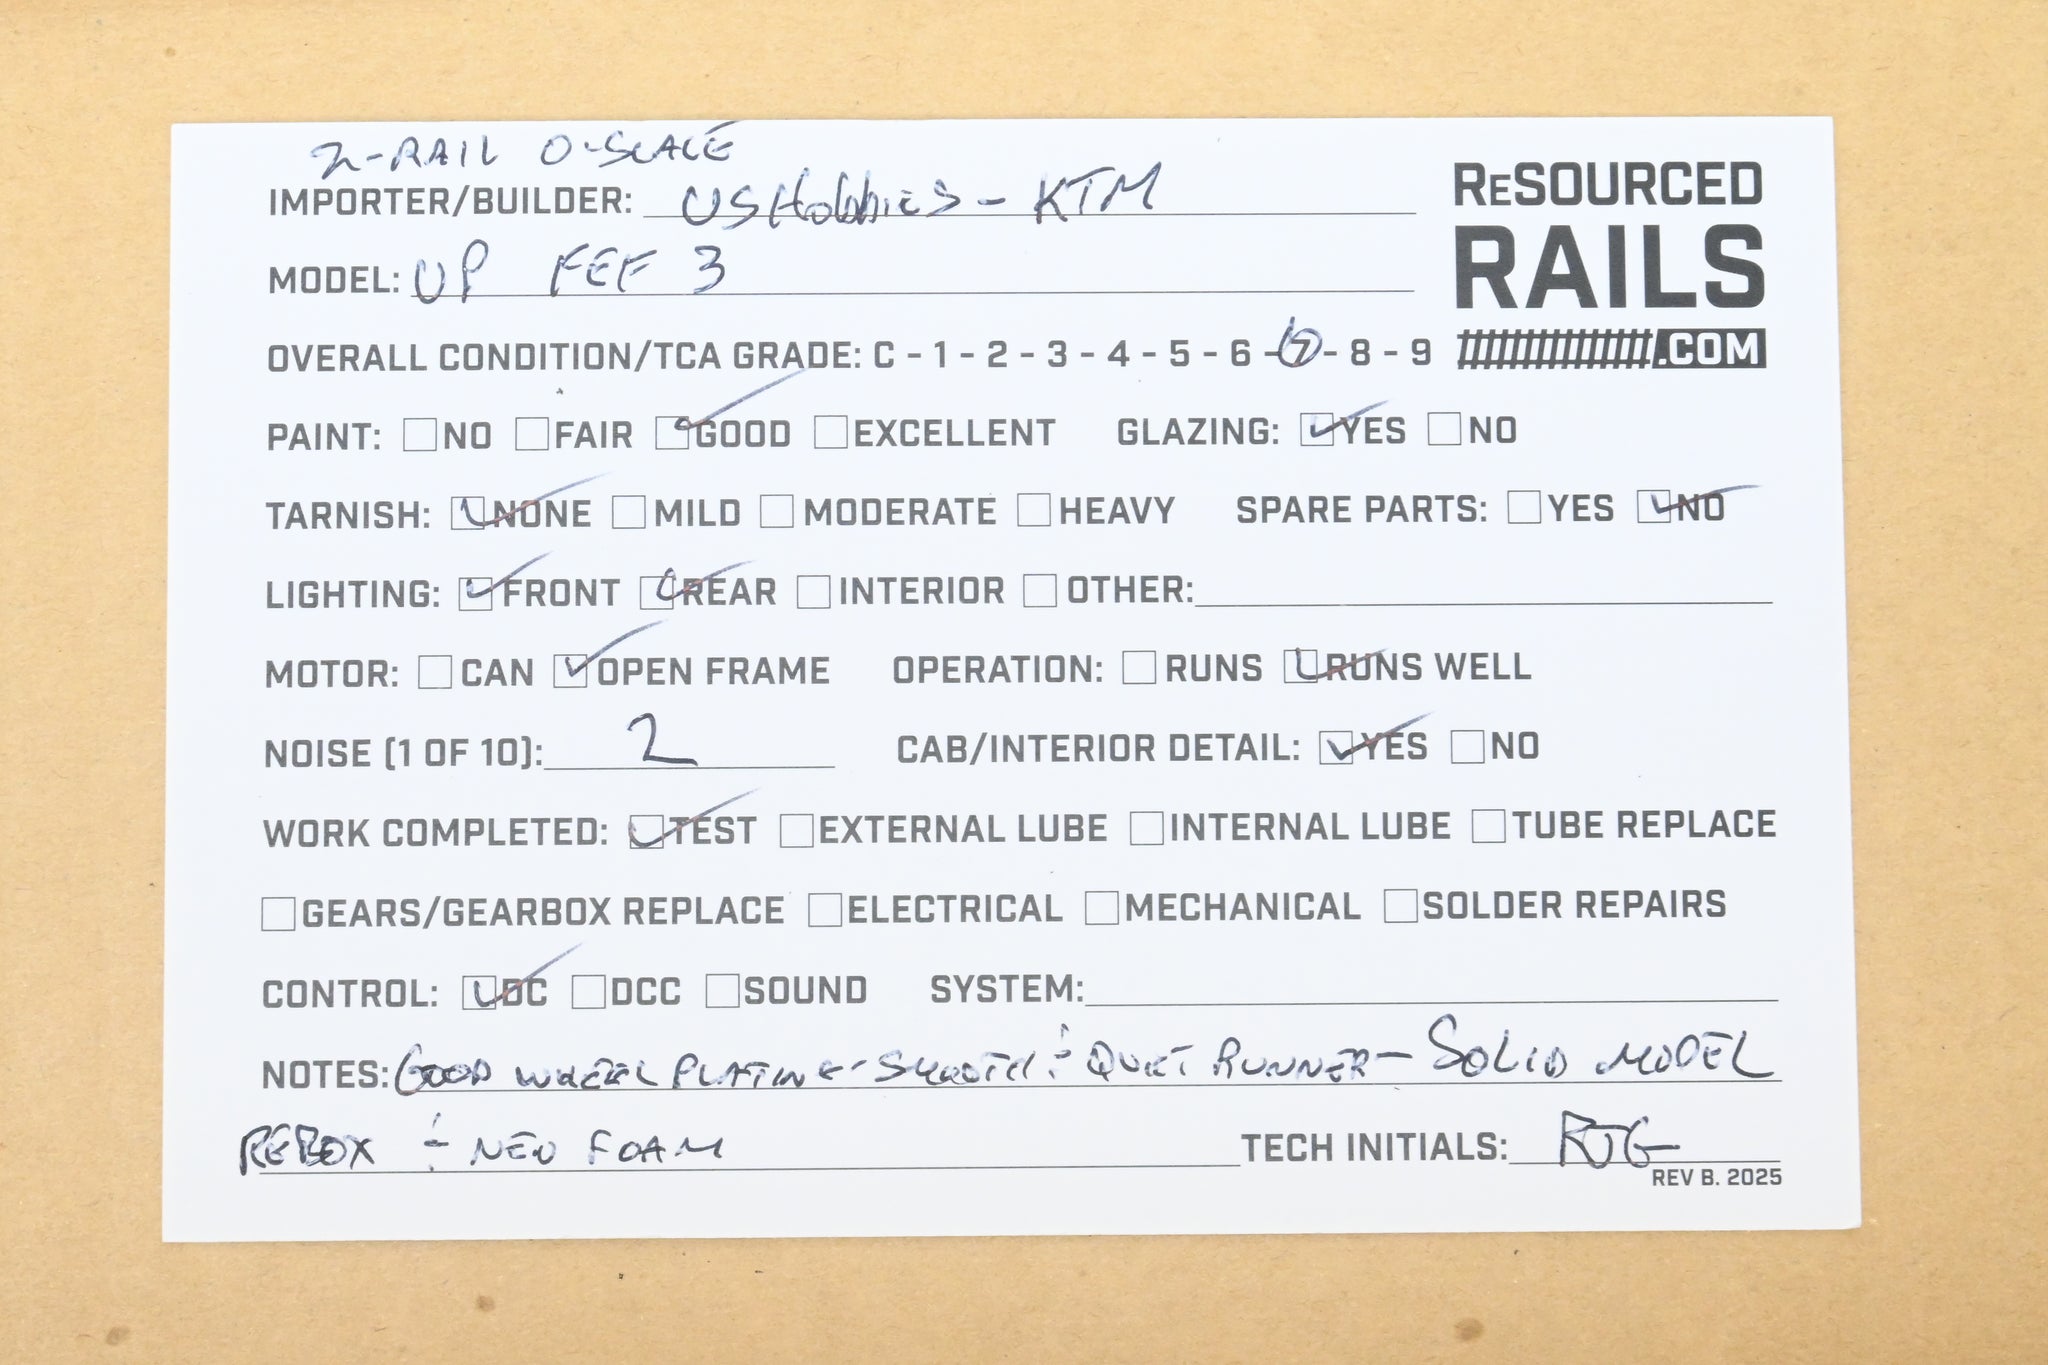 2-RAIL O-SCALE
IMPORTER/BUILDER: US Hobbies - KTM
ReSOURCED
RAILS
.COM
MODEL: UP FEF 3
OVERALL CONDITION/TCA GRADE: C - 1 - 2 - 3 - 4 - 5 - 6 - 7 - 8 - 9
PAINT: NO FAIR GOOD EXCELLENT GLAZING: YES NO
TARNISH: NONE MILD MODERATE HEAVY SPARE PARTS: YES NO
LIGHTING: FRONT REAR INTERIOR OTHER:
MOTOR: CAN OPEN FRAME OPERATION: RUNS RUNS WELL
NOISE (1 OF 10): 2 CAB/INTERIOR DETAIL: YES NO
WORK COMPLETED: TEST EXTERNAL LUBE INTERNAL LUBE TUBE REPLACE
GEARS/GEARBOX REPLACE ELECTRICAL MECHANICAL SOLDER REPAIRS
CONTROL: DC DCC SOUND SYSTEM:
NOTES: GOOD WHEEL PLATING - SMOOTH & QUIET RUNNER - SOLID MODEL
REBOX & NEW FOAM TECH INITIALS: RJG
REV B. 2025